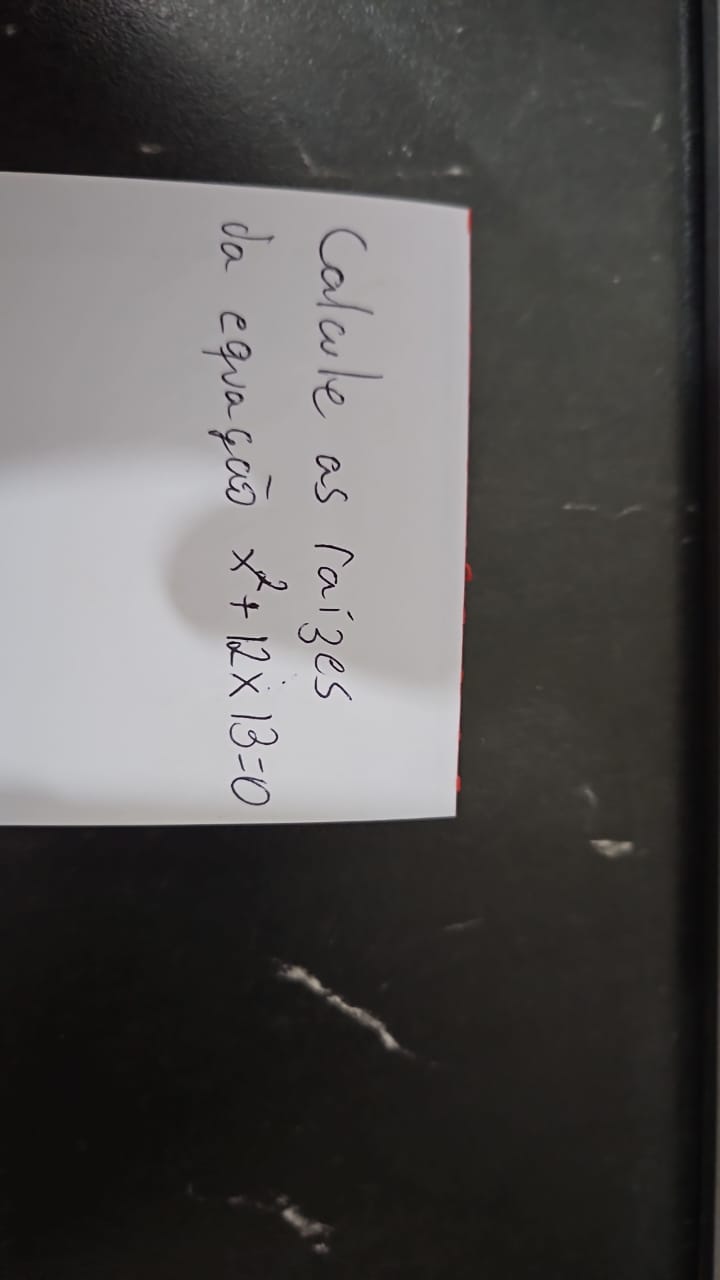 Calcule as raízes
da equação x²+12x13=0